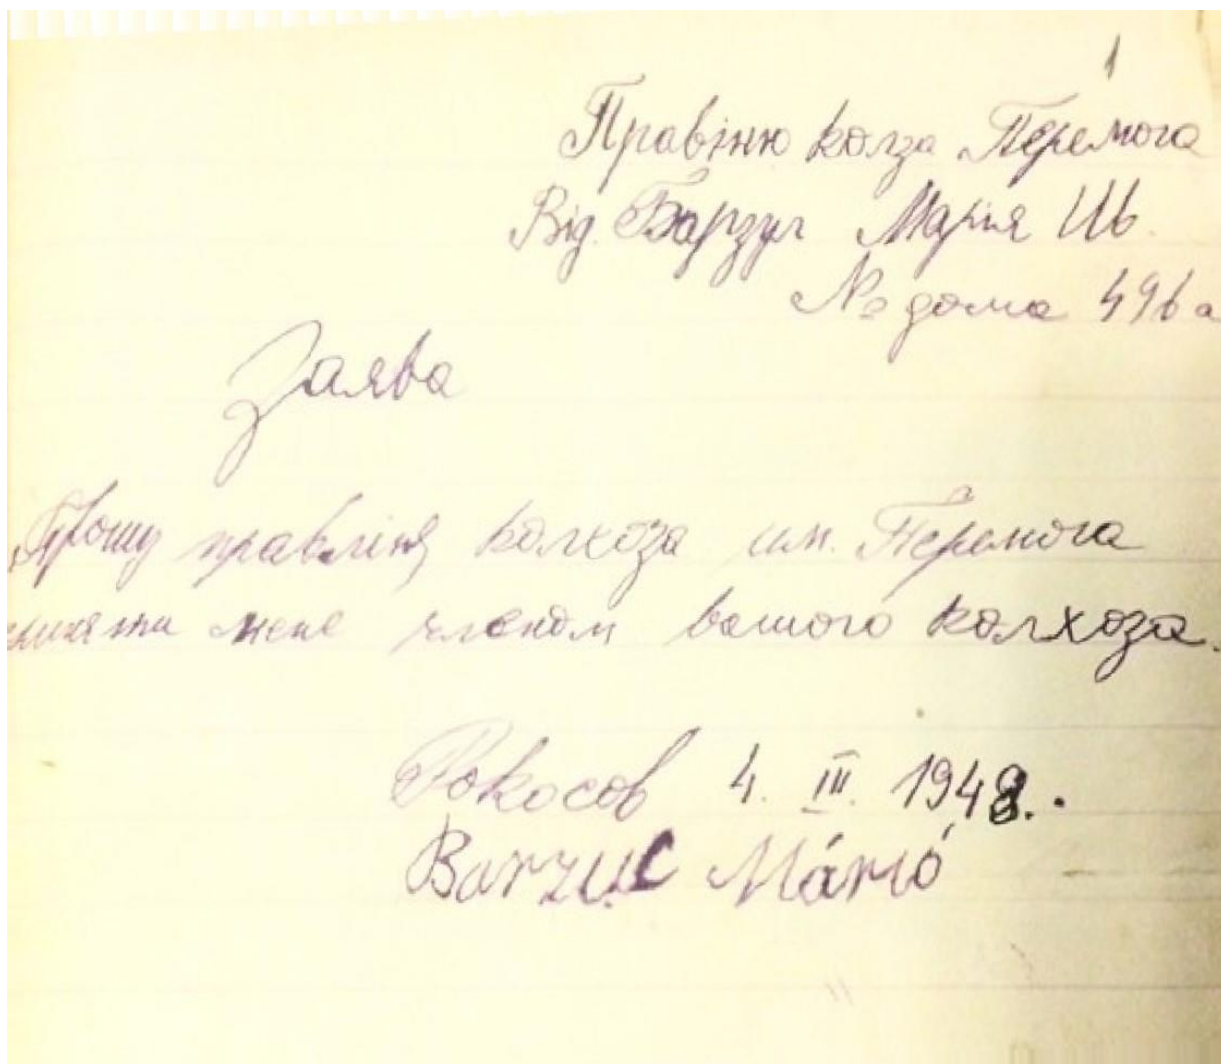 1
Правіню колза Перемога
Від Барзул Марія Ив.
№ дома 496 а
Заява
Прошу правліня колхоза им. Перемога
мене членом вашого колхоза.
Рокосов 4. III. 1948.
Barzul Márió